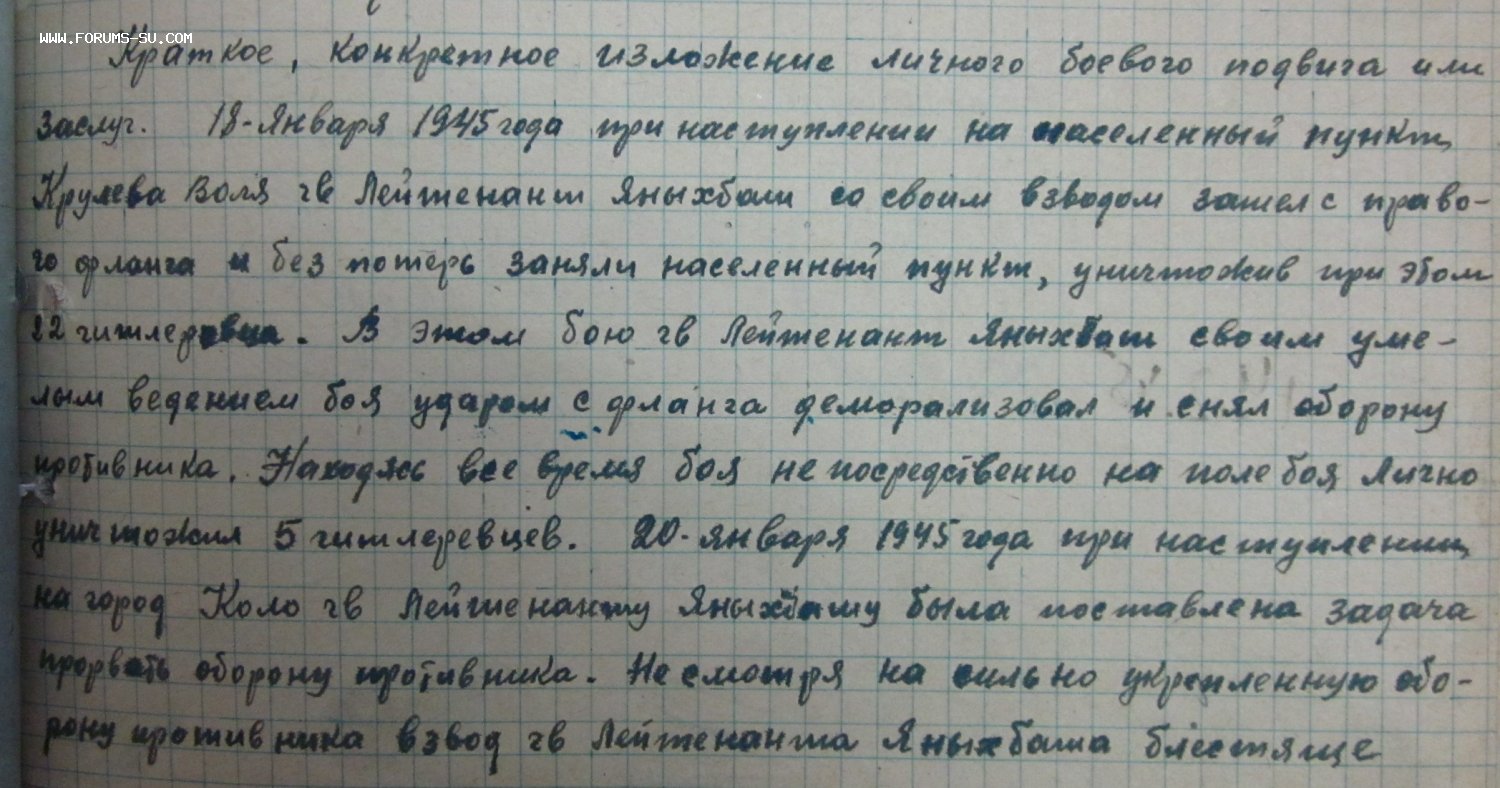 WWW.FORUMS-SU.COM
Краткое, конкретное изложение личного боевого подвига или
заслуг. 18-Января 1945 года при наступлении на населенный пункт
Крулева Воля гв Лейтенант Яныхбаш со своим взводом зашел с право-
го фланга и без потерь заняли населенный пункт, уничтожив при этом
22 гитлеровца. В этом бою гв Лейтенант Яныхбаш своим уме-
лым ведением боя ударом с фланга деморализовал и снял оборону
противника. Находясь все время боя непосредственно на поле боя Лично
уничтожил 5 гитлеревцев. 20-января 1945 года при наступлении
на город Коло гв Лейтенанту Яныхбашу была поставлена задача
прорвать оборону противника. Не смотря на сильно укрепленную обо-
рону противника взвод гв Лейтенанта Яныхбаша блестяще